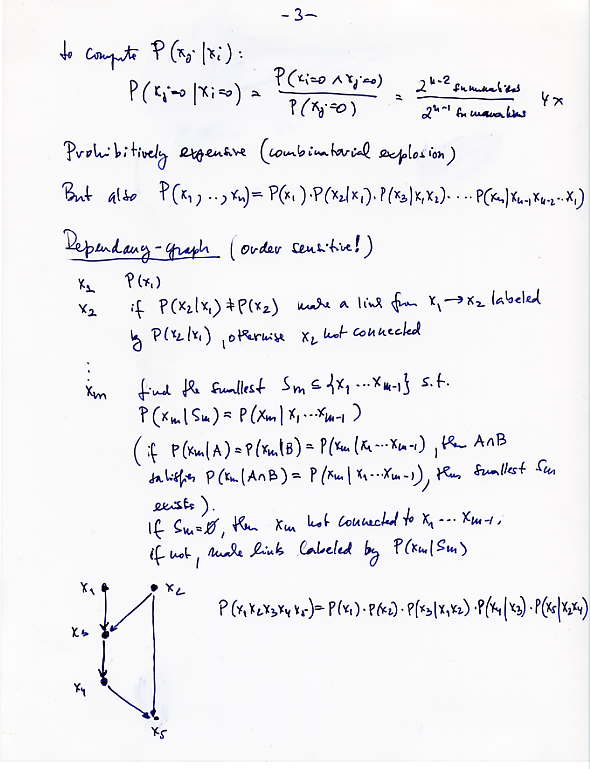 -3-
to compute P(xj|xi):
P(xj=0|xi=0) = P(xi=0 ∧ xj=0) / P(xj=0) = 2^(n-2) summations / 2^(n-1) summations
Prohibitively expensive (combinatorial explosion)
But also P(x1,..,xn) = P(x1)·P(x2|x1)·P(x3|x1x2)····P(xn|xn-1xn-2..x1)
Dependency-graph (order sensitive!)
x1 P(x1)
x2 if P(x2|x1) ≠ P(x2) make a link from x1→x2 labeled
by P(x2|x1), otherwise x2 not connected
⋮
xm find the smallest Sm ⊆ {x1...xm-1} s.t.
P(xm|Sm) = P(xm|x1...xm-1)
(if P(xm|A) = P(xm|B) = P(xm|x1...xm-1), then A∩B
satisfies P(xm|A∩B) = P(xm|x1...xm-1), thus smallest Sm
exists).
If Sm=∅, then xm not connected to x1...xm-1,
if not, make links labeled by P(xm|Sm)
x1 x2
P(x1x2x3x4x5) = P(x1)·P(x2)·P(x3|x1x2)·P(x4|x3)·P(x5|x2x4)
x3
x4
x5